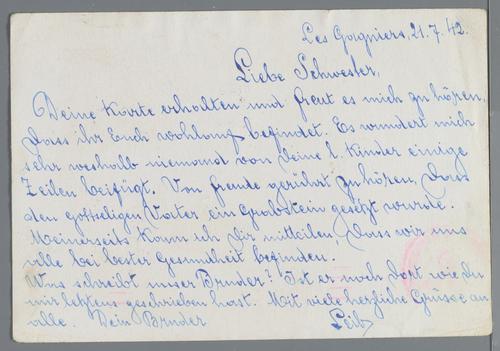 Les Goigniers, 21.7.42.
Liebe Schwester,
Deine Karte erhalten und freut es mich zu hören,
dass ihr Euch wohlauf befindet. Es wundert mich
sehr weshalb niemand von deine l. Kinder einige
Zeilen beifügt. Von freude gerührt zu hören, dass
den gottseligen Vater ein Grabstein gesetzt wurde.
Meinerseits kann ich Dir mitteilen, dass wir uns
alle bei bester Gesundheit befinden.
Was schreibt unser Bruder? Ist er noch dort wie Du
mir letztens geschrieben hast. Mit viele herzliche Grüsse an
alle. Dein Bruder Leib